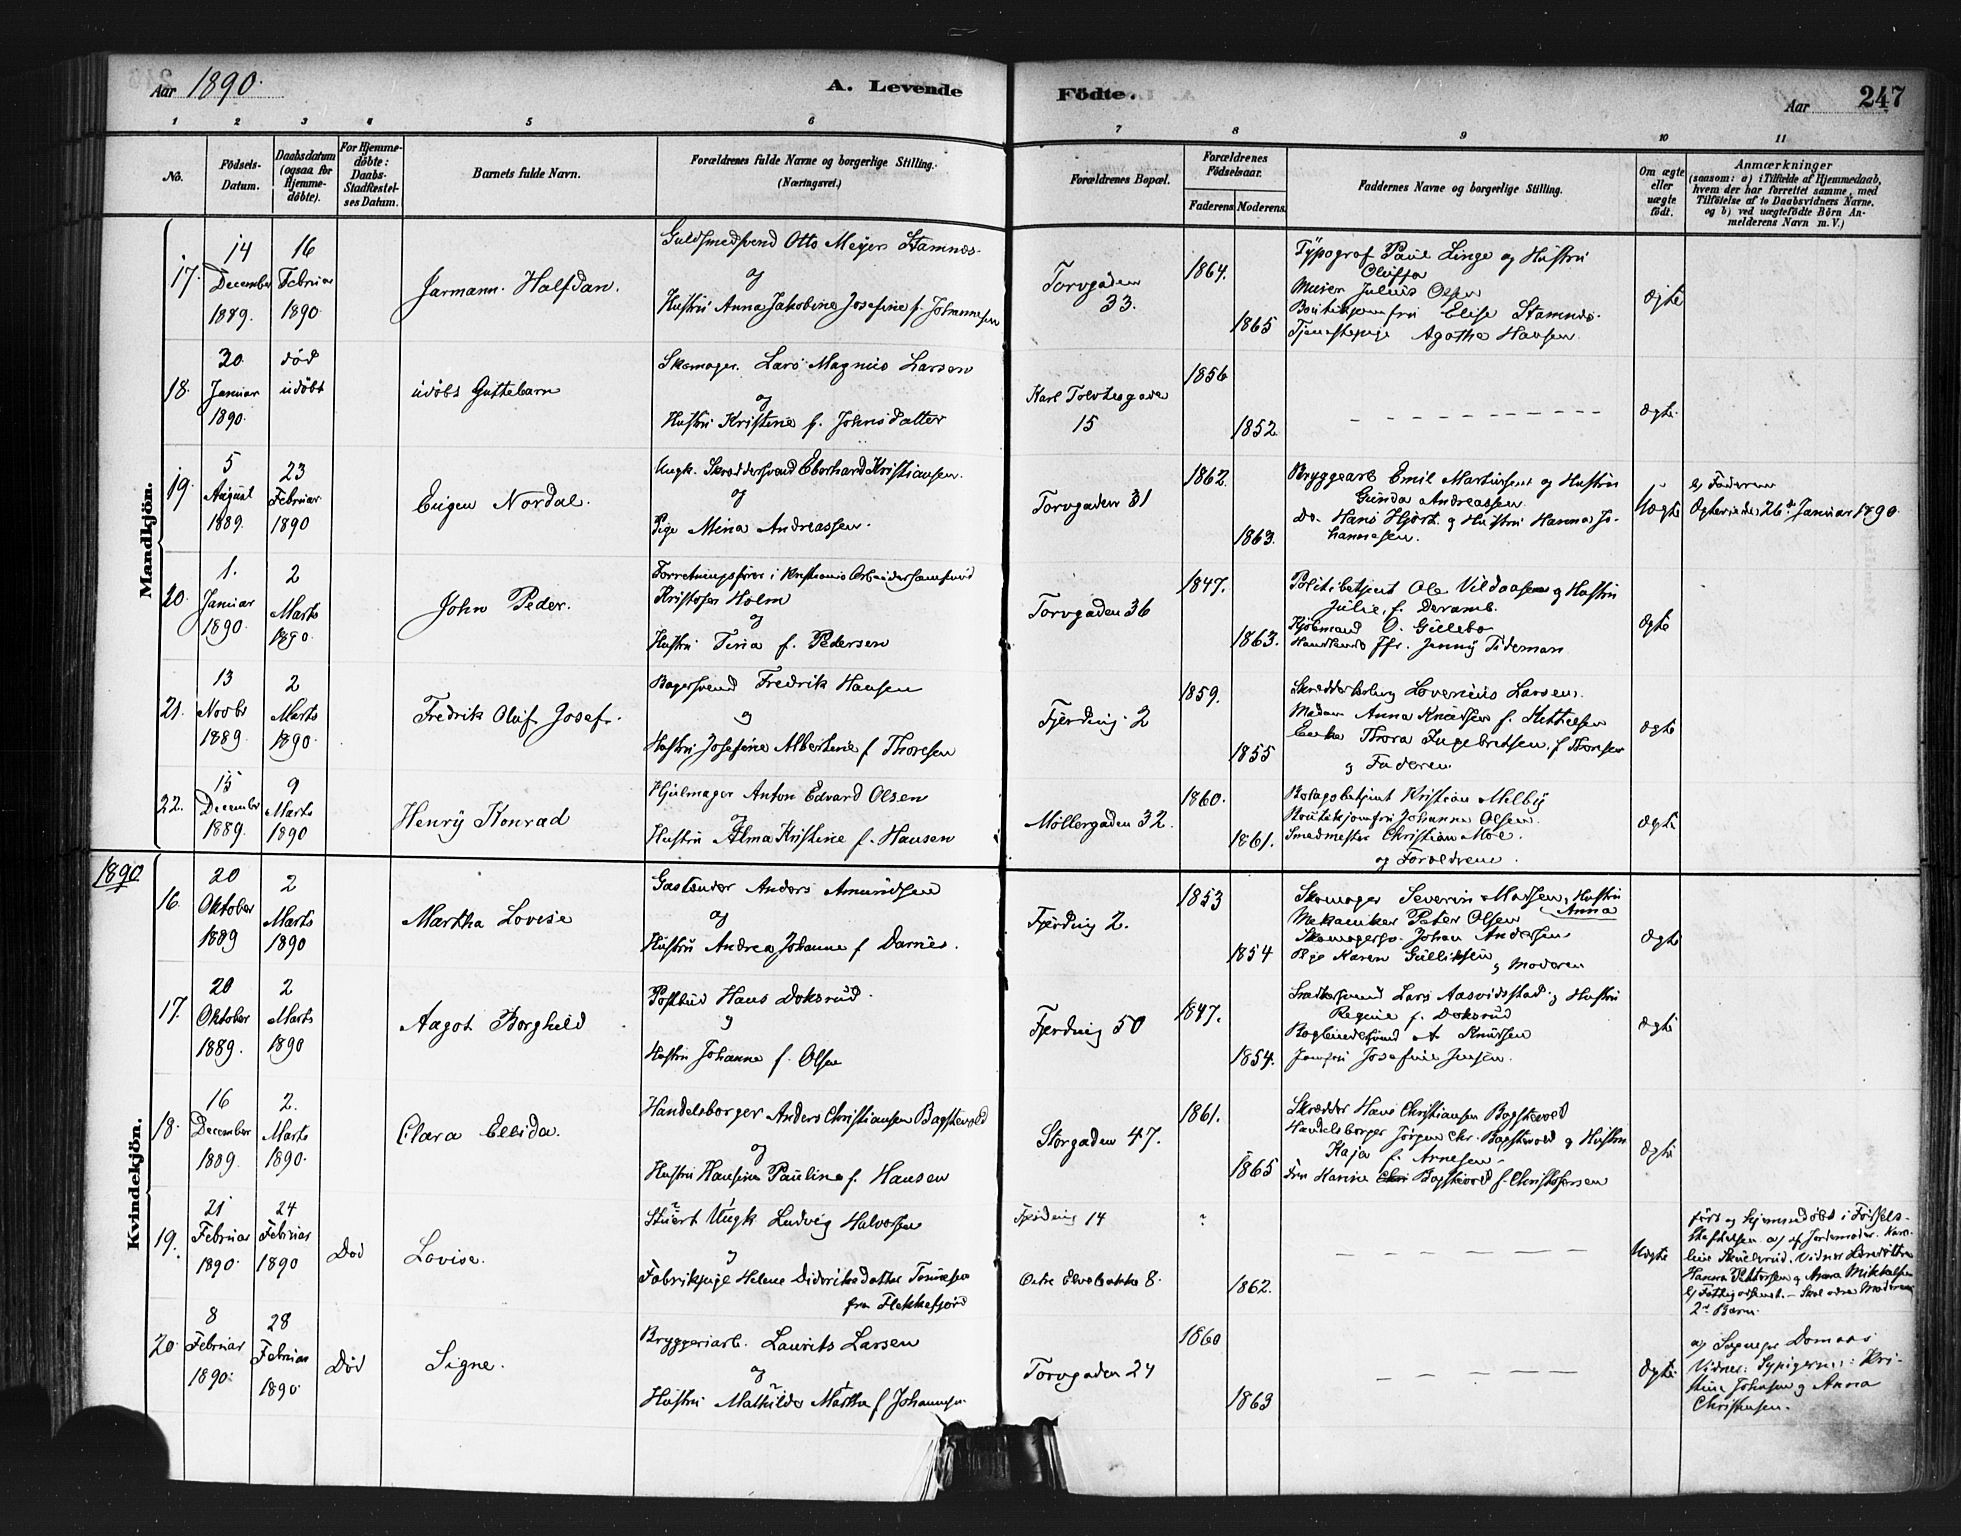 Aar 1890.
A. Levende
Födte.
Aar
247
1 2 3 4 5 6 7 8 9 10 11
No.
Födsels-
Datum.
Daabsdatum
(ogsaa for
Hjemme-
döbte).
For Hjemme-
döbte:
Daabs-
Stadfæstel-
ses Datum.
Barnets fulde Navn.
Forældrenes fulde Navne og borgerlige Stilling.
(Næringsvei.)
Forældrenes Bopæl.
Forældrenes
Födselsaar.
Faderens
Moderens.
Faddernes Navne og borgerlige Stilling.
Om ægte
eller
uægte
födt.
Anmærkninger
(saasom: a) i Tilfælde af Hjemmedaab,
hvem der har forrettet samme, med
Tilföielse af to Daabsvidners Navne.
og b) ved uægtefödte Börn An-
melderens Navn m. V.)
Mandkjön.
17.
14
December
1889.
16
Februar
1890.
Jarmann Halfdan.
Guldsmedsvend Otto Meyer Stamnæs
og
Hustru Anna Jakobine Josefine f. Johannesen
Torvgaden
33.
1864.
1865
Typograf Paul Linge og Hustru
Olufja
Murer Julius Olsen
Elise Stamnæs.
Tjenestepige Agathe Hansen.
Ægte
18.
30
Januar
1890.
død
udøbt
udøbt Guttebarn
Skomager Lars Magnus Larsen
og
Hustru Kristine f. Johnsdatter
Karl Tolvtesgade
15
1856
1852
Ægte
19.
5
August
1889.
23
Februar
1890
Eugen Nordal.
Ungk. Skræddersvend Eberhard Kristiansen.
og
Pige Mina Andreassen.
Torvgaden 31
1862.
1863.
Bryggearb Emil Martinsen og Hustru
Gunda Andreassen
Do. Hans Hjort og Hustru Hanna Jo-
hannesen.
Uægte
b) Faderen
26 Januar 1890.
20.
1.
Januar
1890.
2
Marts
1890.
John Peder.
Forretningsfører i Kristiania Arbeidersamfund
Kristofer Holm
og
Hustru Tina f. Pedersen
Torvgaden 36
1847.
1863.
Politibetjent Ole Vildaasen og Hustru
Julie f. Deramb.
Kjøbmand O. Gullebo
Jenny Tideman
Ægte
21.
13
Novbr
1889.
2
Marts
1890.
Fredrik Oluf Josef.
Bagersvend Fredrik Hansen
og
Hustru Josefine Albertine f Thoresen
Fjerding. 2
1859.
1855
Lovenius Larsen.
Madam Anna Knudsen f. Kittelsen
Enke Thora Ingebretsen, f Thoresen
og Faderen.
Ægte
22.
15
December
1889.
9
Marts
1890
Henry Konrad
Hjulmager Anton Edvard Olsen
og
Hustru Alma Kristine f. Hansen
Møllergaden 32.
1860.
1861.
Bolagsbetjent Kristian Melby
Johanna Olsen.
Smedmester Christian Moe.
og Forældrene.
Ægte
1890
Kvindekjön.
16.
20
Oktober
1889
2
Marts
1890
Martha Lovise
Gastænder Anders Amundsen
og
Hustru Andrea Johanne f Darnes.
Fjerding 2.
1853
1854
Skomager Severin Madsen, Hustru
Anna
Mekaniker Peter Olsen
Skomagersv. Johan Andersen
Pige Karen Gulliksen
og Moderen
Ægte
17.
20
Oktober
1889.
2
Marts
1890
Aagot Borghild
Postbud Hans Doksrud.
og
Hustru Johanne f. Olsen
Fjerding 50
1847.
1854.
Lars Aasvidstad og Hustru
Regine f. Doksrud
Bogbindersvend A Knudsen
Jomfru Josefine Jensen.
Ægte
18.
16
December
1889.
2.
Marts
1890.
Clara Ellida.
Handelsborger Anders Christiansen Bagstevold
og
Hustru Hansine Pauline f. Hansen
Storgaden 47.
1861.
1865
Skrædder Hans Christiansen Bagstevold
Handelsborger Jørgen Chr. Bagstevold og Hustru
Kaja f. Arnesen
Fru Harine Chri Bagstevold f. Christofersen
Ægte
19.
21
Februar
1890.
24
Februar
1890
Død
Lovise.
Stuert Ungk Ludvig Halvorsen
og
Fabrikpige Helene Didriksdatter Tønnesen
fra Flekkefjord
Fjerding 14
Østre Elvebakke 8.
?
1862.
Uægte
født og hjemmedøbt i Fødsels-
Stiftelsen a) af Jordemoder Karo-
line Skullerud. Vidner
Hanna Pettersen og Anna Mikkelsen
b) Moderens
2det Barn.
20.
8
Februar
1890.
28
Februar
1890.
Død
Signe.
Bryggeriarb. Laurits Larsen
og
Hustru Mathilde Martha f Johannesen
Torvgaden 24
1860
1863
Ægte
a) Sognepr Domaas
Vidner: Sypigerne: Kri-
stine Johnsen og Anna
Christensen.